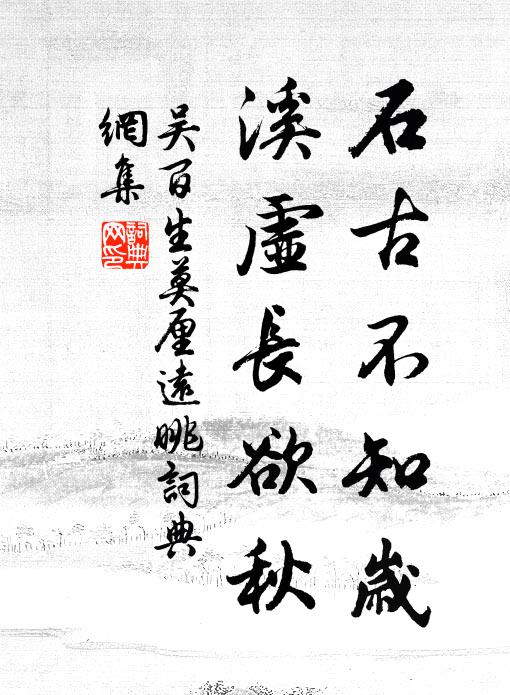 石古不知歲
溪虛長欲秋
吳百生莫厘遠眺詞典
網集
詞典
网印